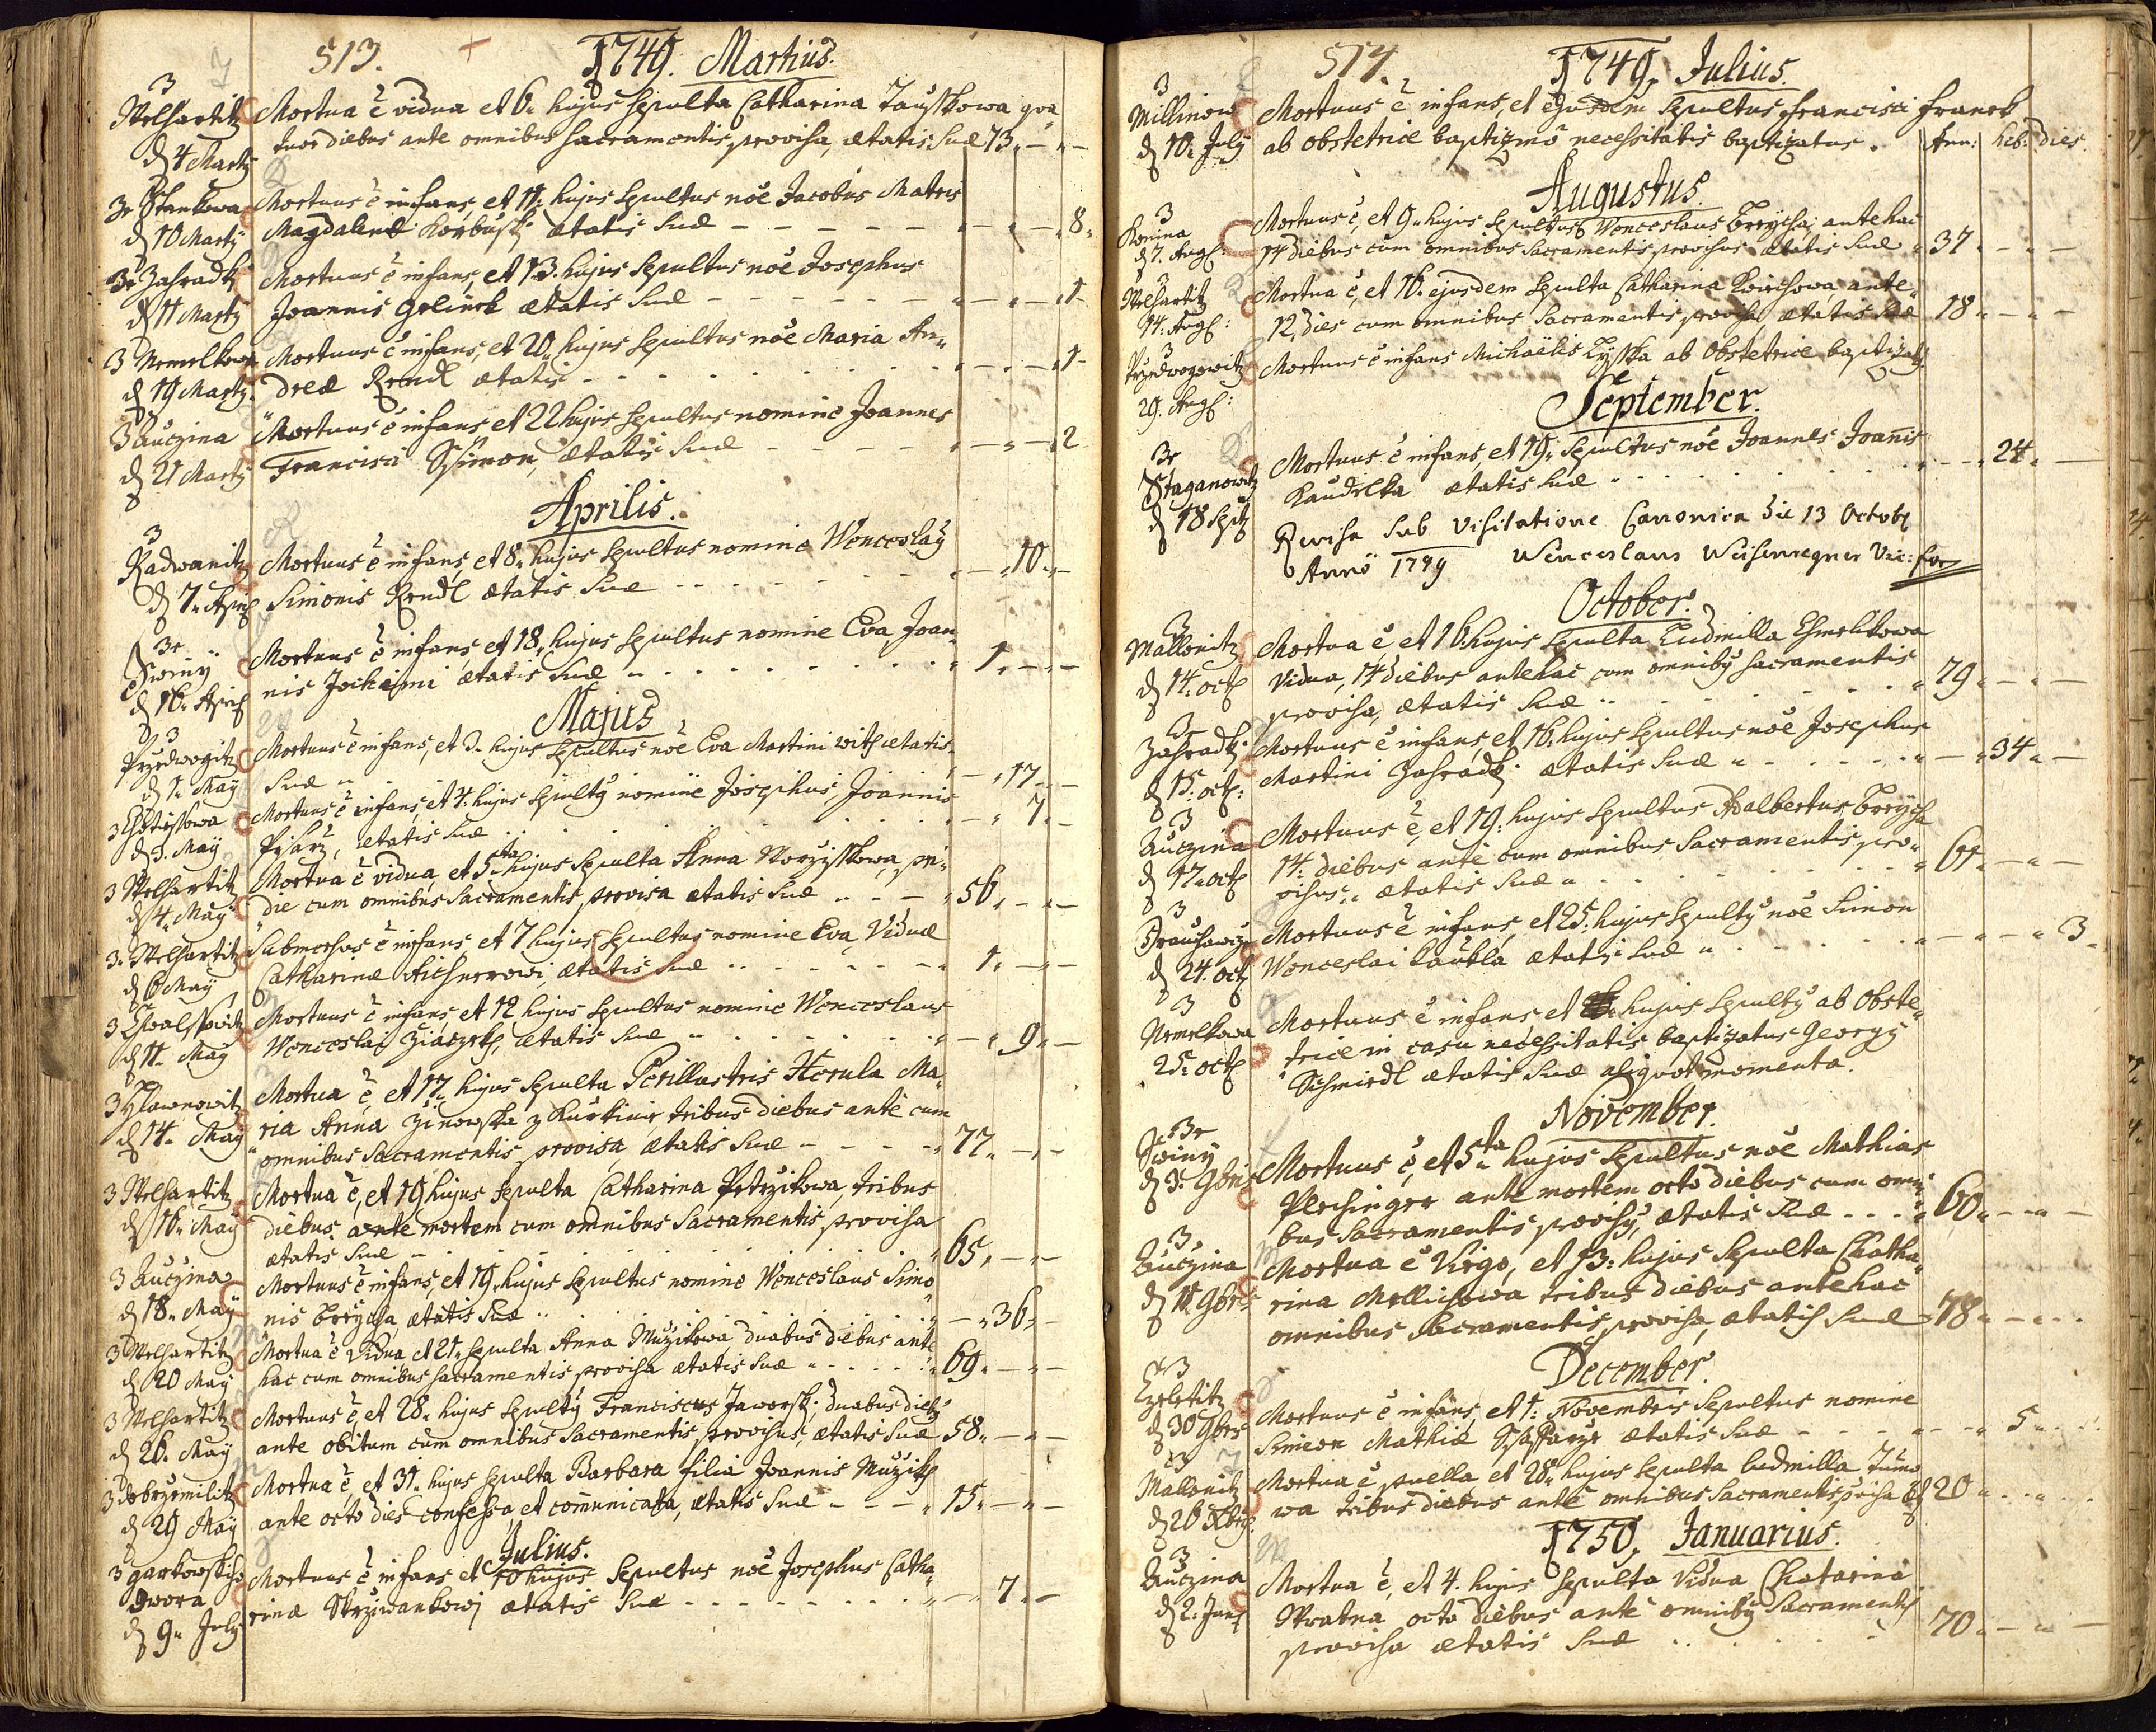 513.
1749. Martius.
3 Welhartitz
d 4 Martij
Mortua ē vidua et 6. hujus sepulta Catharina Tausskowa qva„
tuor diebus ante omnibus Sacramentis provisa, ætatis suæ 73. — „ —
d 10 Martij
Mortuus ē infans, et 11. hujus sepultus noē Jacobus Matris
Magdalenæ ætatis suæ — — 8.
3 Zahradk
d 11 Martij
Mortuus ē infans, et 13. hujus Sepultus noē Josephus
Joannis ætatis suæ — — 1
3 Nemelkowa
d 19 Martij
Mortuus ē infans, et 20. hujus sepultus noē Maria An„
dreæ Rendl ætatis — — 1
3 Auczina
d 21 Martij
Mortuus ē infans et 22 hujus sepultus nomine Joannes
Francisci Ssimon, ætatis suæ — — 2
Aprilis.
3
Radwanitz
d 7. April
Mortuus ē infans, et 8. hujus sepultus nomine Wenceslaÿ
Simonis Rendl ætatis suæ — 10. —
Swinÿ
d 16. April
Mortuus ē infans, et 18. hujus sepultus nomine Eva Joan„
nis ætatis suæ 1. — —
Majus
3
Przedwogitz
d 1. Maÿ
Mortuus ē infans, et 3. hujus sepultus noē Eva Martini ætatis
suæ — 17 —
3
d 3. Maÿ
Mortuus ē infans, et 4. hujus sepultÿ nomine Josephus, Joannis
Pisarz, ætatis suæ — 7. —
3 Welhartitz
d 4. Maÿ
Mortua ē vidua, et 5ta hujus sepulta Anna pri„
die cum omnibus Sacramentis provisa ætatis suæ 56. — —
3. Welhartitz
d 6 Maÿ
Submersus ē infans et 7 hujus sepultus nomine Eva Viduæ
Catharinæ ætatis suæ 1. — —
3
d 11. Maÿ
Mortuus ē infans, et 12 hujus sepultus nomine Wenceslaus
Wenceslai ætatis suæ — 9. —
3 Hlawnowitz
d 14. Maÿ
Mortua ē, et 17. hujus sepulta Perillustris Herula Ma„
ria Anna tribus diebus ante cum
omnibus Sacramentis provisa ætatis suæ 77. — —
3 Welhartitz
d 16. Maÿ
Mortua ē, et 19 hujus sepulta Catharina tribus
diebus ante mortem cum omnibus Sacramentis provisa
ætatis suæ 65. — —
3 Auczina
d 18. Maÿ
Mortuus ē infans, et 19. hujus sepultus nomine Wenceslaus Simo„
nis Brÿcha, ætatis suæ — 36. —
3 Welhartitz
d 20 Maÿ
Mortua ē Vidua, et 21. sepulta Anna Muzikowa duabus diebus ante
hac cum omnibus sacramentis provisa ætatis suæ 69. — —
3 Welhartitz
d 26. Maÿ
Mortuus ē, et 28. hujus sepultÿ Franciscus Jaworsk: duabus dieb
ante obitum cum omnibus Sacramentis provisus, ætatis suæ 58. — —
3 dobrzemilitz
d 29 Maÿ
Mortua ē, et 31. hujus sepulta Barbara filia Joannis Muzik
ante octo dies confessa, et comūnicata, ætatis suæ 15. — —
Julius.
3
dwora
d 9. Julÿ
Mortuus ē infans et 10 hujus Sepultus noē Josephus Catha„
rinæ ætatis suæ — 7. —
514.
1749. Julius.
3
Millinow
d 10. Julÿ
Mortuus ē infans, et ejusdem sepultus Francisci Franck
ab obstetrice baptizmo necessitatis baptizatus. Ann: heb: dies.
Augustus.
3
Konina
d 7. Aug:
Mortuus ē, et 9. hujus sepultus Wenceslaus Brÿcha, ante hac
14 diebus cum omnibus Sacramentis provisus ætatis suæ 37. — —
3
Welhartitz
14. Aug:
Mortua ē, et 16. ejusdem sepulta Catharina ante„
12, dies cum omnibus Sacramentis provisa ætatis suæ 18. — —
3
Przedwogowitz
29. Aug:
Mortuus ē infans Michaelis ab Obstetrice baptizatÿ
September.
d 18 Sept
Mortuus ē infans, et 19. Sepultus noē Joannes Joanis
Kaudelka ætatis suæ — 24. —
Revisa Sub Visitatione Canonica die 13 Octobr
Anno 1749 Wenceslaus Vic: for
October.
3
Mallonitz
d 14. oct
Mortua ē et 16 hujus sepulta Ludmilla
Vidua, 14 diebus antehac cum omnibÿ sacramentis
provisa, ætatis suæ 79. — —
3
Zahradk
d 15. oct:
Mortuus ē infans, et 16. hujus sepultus noē Josephus
Martini Zahradk: ætatis suæ — 34. —
3
Auczina
d 17. oct
Mortuus ē, et 19. hujus sepultus Adalbertus Brÿcha
14. diebus ante cum omnibus Sacramentis, pro„
visus, ætatis suæ 61. — —
3
d 24. oct
Mortuus ē infans, et 25. hujus sepultÿ noē Simon
Wenceslai ætatis suæ — — 3.
3
Nemelkowa
25. oct
Mortuus ē infans et hujus sepultÿ ab Obste„
trice in casu necessitatis baptizatus Georgÿ
Schmirdl ætatis suæ aliquot momenta.
November.
Swinÿ
d 3. 9bris
Mortuus ē, et 5ta hujus sepultus noē Mathias
ante mortem octo diebus cum omni
bus Sacramentis provisÿ, ætatis suæ 60. — —
3.
Auczina
d 11. 9bris
Mortua ē Virgo, et 13. hujus Sepulta Catha„
rina tribus diebus antehac
omnibus Sacramentis provisa, ætatis suæ 78. —
December.
3
d 30 9bris
Mortuus ē infans, et 1. Novembris sepultus nomine
Simeon Mathiæ ætatis suæ — 5
3
Mallonitz
d 26 Xbris
Mortua ē puella et 28. hujus sepulta Ludmilla Tumo
wa tribus diebus ante omnibus Sacramentis 20
1750. Januarius.
3
Auczina
d 2. Jan
Mortua ē, et 4. hujus sepulta Vidua Chatarina
Wratna octo diebus ante omnibÿ Sacramentis
provisa ætatis suæ 70. — —